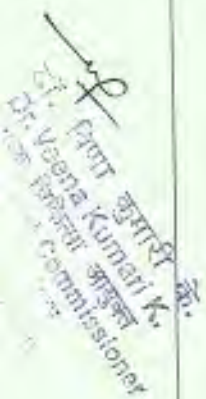 डॉ. विणा कुमारी के.
Dr. Veena Kumari K.
आयुक्त
Commissioner